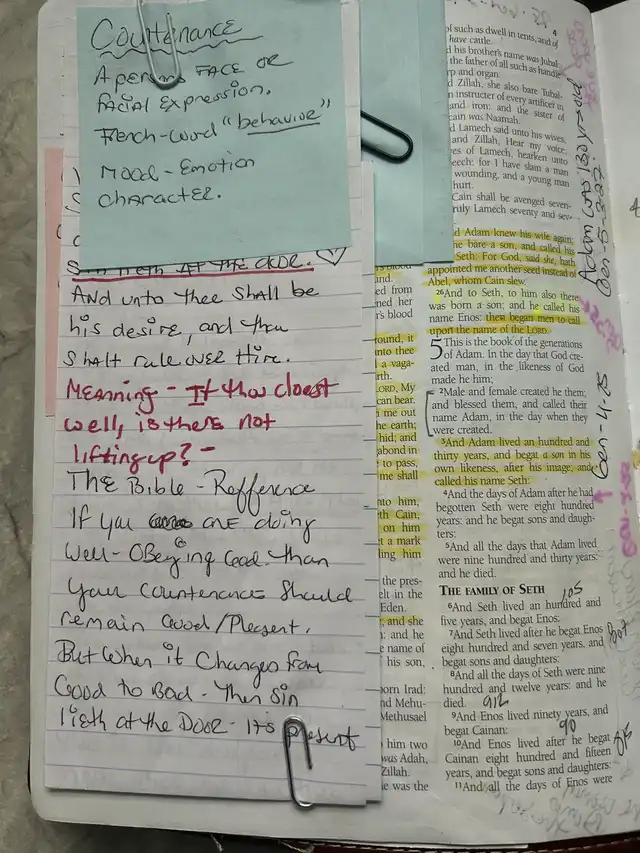 Countinance
A persons FACE OR
facial Expression.
French-Word "behavior"
Mood-Emotion
character.
Sin lieth AT the door. ♡
And unto thee Shall be
his desire, and thou
Shalt rule over Him.
Meaning - If thou doest
well, is there not
lifting up? -
The Bible - Refference
If you are doing
Well - Obeying God. Than
Your Countenance Should
remain Good/Plesent.
But When it Changes from
Good to Bad - Then sin
lieth at the Door - It's present
4
of such as dwell in tents, and of
have cattle.
d his brother's name was Jubal:
the father of all such as handle
rp and organ.
d Zillah, she also bare Tubal-
n instructor of every artificer in
and iron: and the sister of
cain was Naamah.
d Lamech said unto his wives,
and Zillah, Hear my voice;
es of Lamech, hearken unto
eech: for I have slain a man
wounding, and a young man
hurt.
Cain shall be avenged seven-
ruly Lamech seventy and sev-
d Adam knew his wife again;
he bare a son, and called his
Seth: For God, said she, hath
appointed me another seed instead of
Abel, whom Cain slew.
26And to Seth, to him also there
was born a son; and he called his
name Enos: then began men to call
upon the name of the LORD.
5 This is the book of the generations
of Adam. In the day that God cre-
ated man, in the likeness of God
made he him;
2Male and female created he them;
and blessed them, and called their
name Adam, in the day when they
were created.
3And Adam lived an hundred and
thirty years, and begat a son in his
own likeness, after his image; and
called his name Seth:
4And the days of Adam after he had
begotten Seth were eight hundred
years: and he begat sons and daugh-
ters:
5And all the days that Adam lived
were nine hundred and thirty years:
and he died.
THE FAMILY OF SETH
105
6And Seth lived an hundred and
five years, and begat Enos:
7And Seth lived after he begat Enos
eight hundred and seven years, and
begat sons and daughters:
807
8And all the days of Seth were nine
hundred and twelve years: and he
died. 912
9And Enos lived ninety years, and
begat Cainan: 90
10And Enos lived after he begat
Cainan eight hundred and fifteen
years, and begat sons and daughters:
815
11And all the days of Enos were
nd.
ed from
ned her
r's blood
round, it
into thee
a vaga-
rth.
LORD, My
can bear.
me out
he earth;
hid; and
abond in
to pass,
me shall
nto him,
th Cain,
on him
t a mark
ling him
the pres-
elt in the
Eden.
; and she
: and he
e name of
his son,
born Irad:
nd Mehu-
Methusael
him two
was Adah,
Zillah.
e was the
Adam was 130 yrs old
Gen-4-25